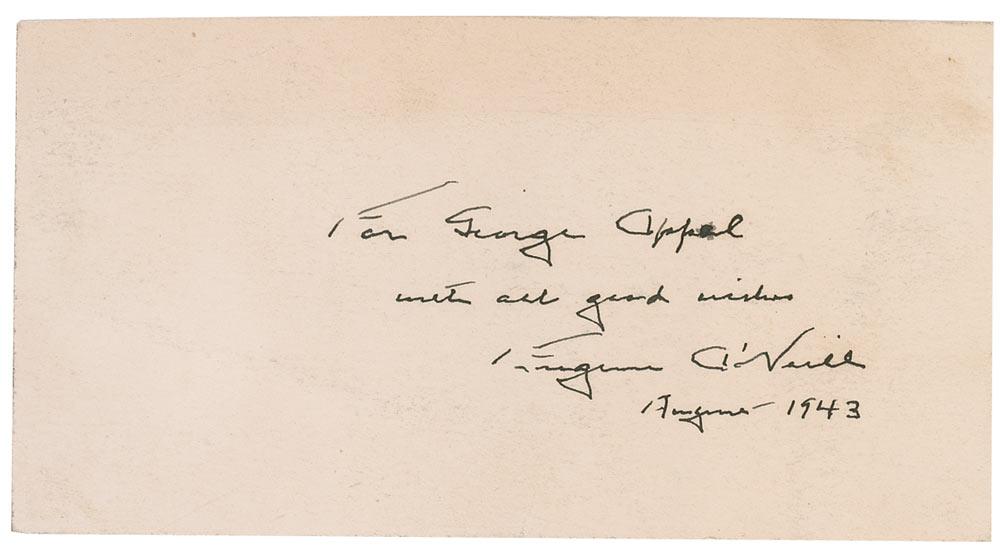 For George Appel
with all good wishes
Eugene O'Neill
August 1943